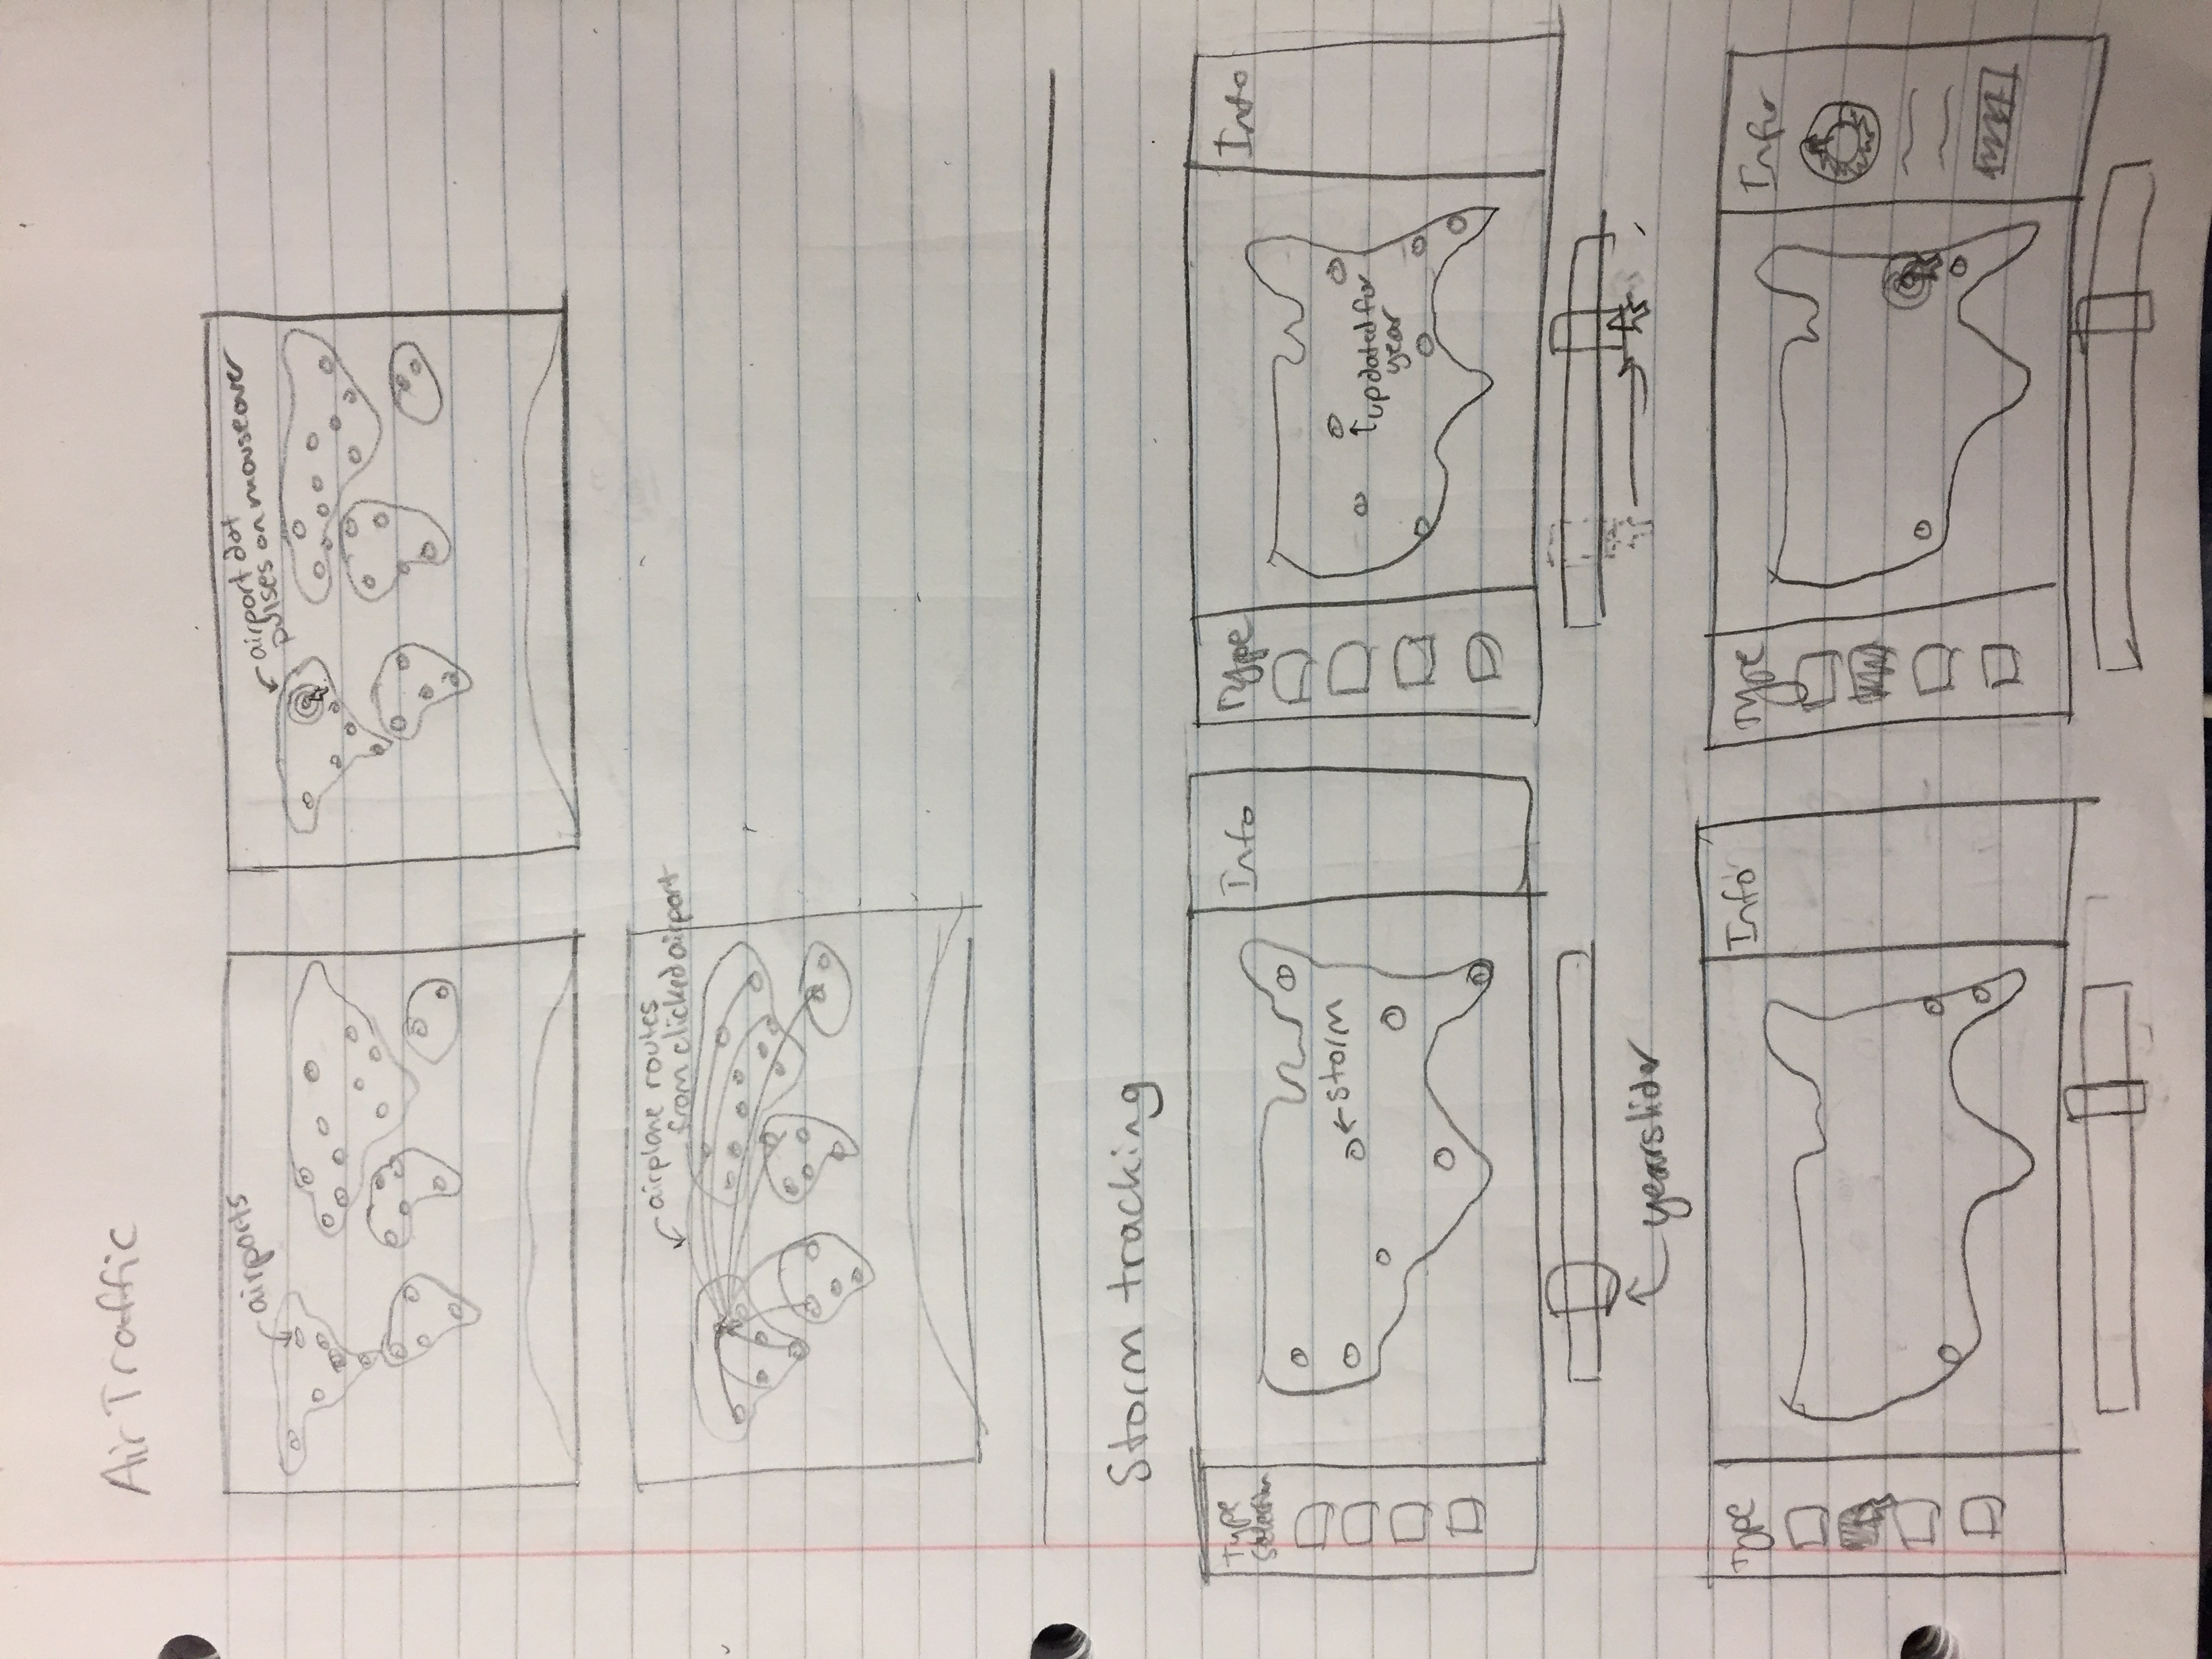 Air Traffic
airports
airport dot
pulses on mouseover
airplane routes
from clicked airport
Storm tracking
Type
Selection
Info
storm
year slider
Type
Info
updated for
year
Type
Info
Type
Info